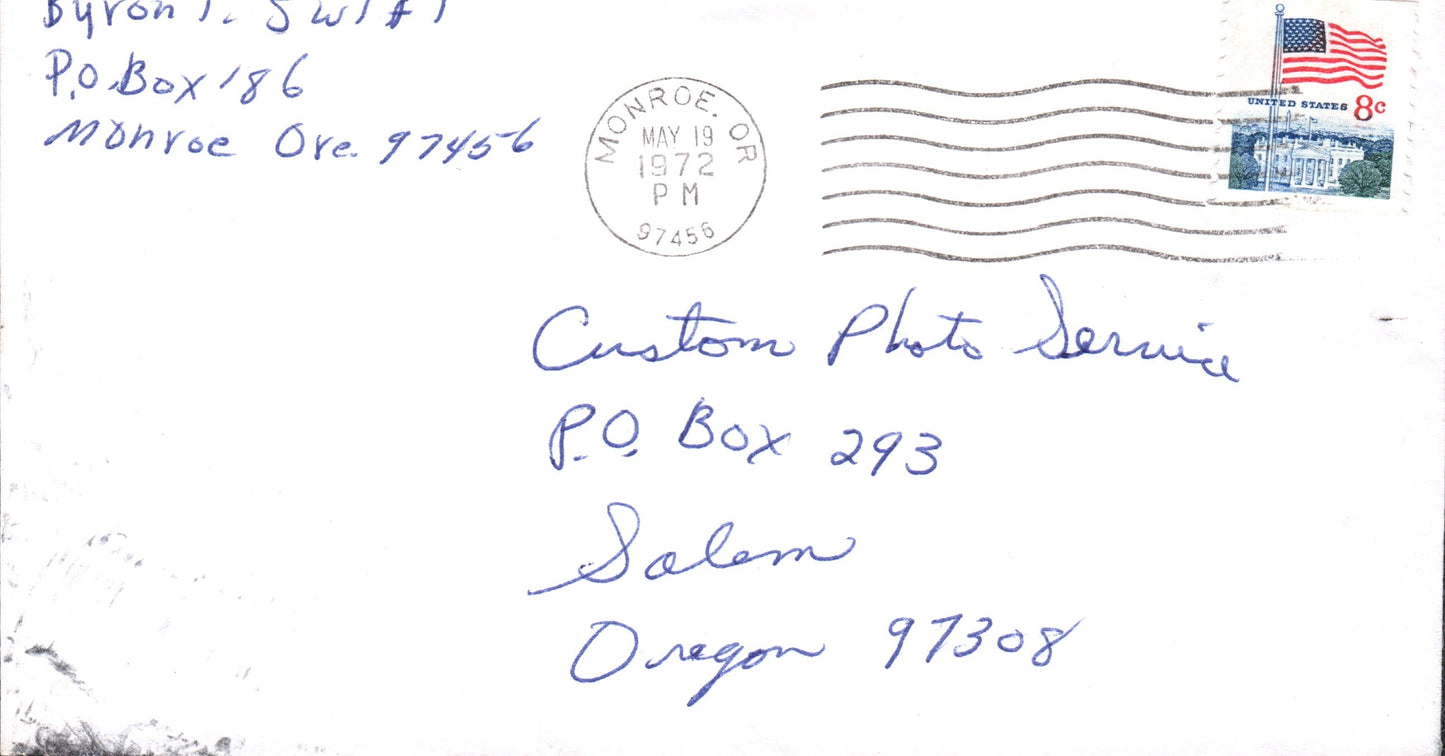 Byron T. Swift
P.O. Box 186
Monroe Ore. 97456
MONROE, OR
MAY 19
1972
PM
97456
UNITED STATES 8c
Custom Photo Service
P.O. Box 293
Salem
Oregon 97308